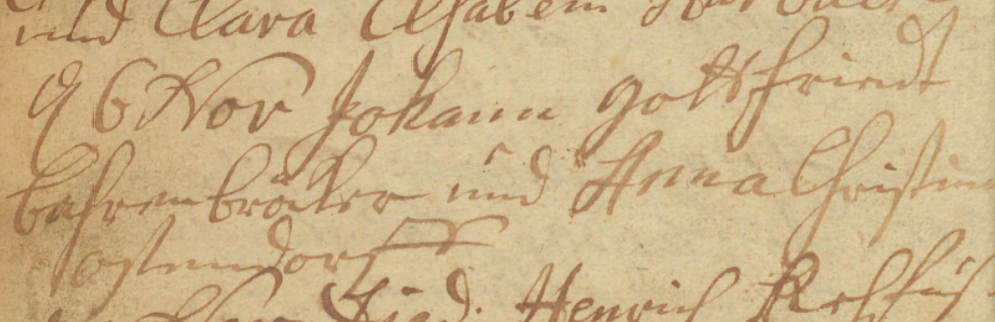 und Clara Elsabein
d 6 Nov Johann Gottfriedt
bahrenbröcker und Anna Christin
ostendorff
Died. Henrich Rehfus